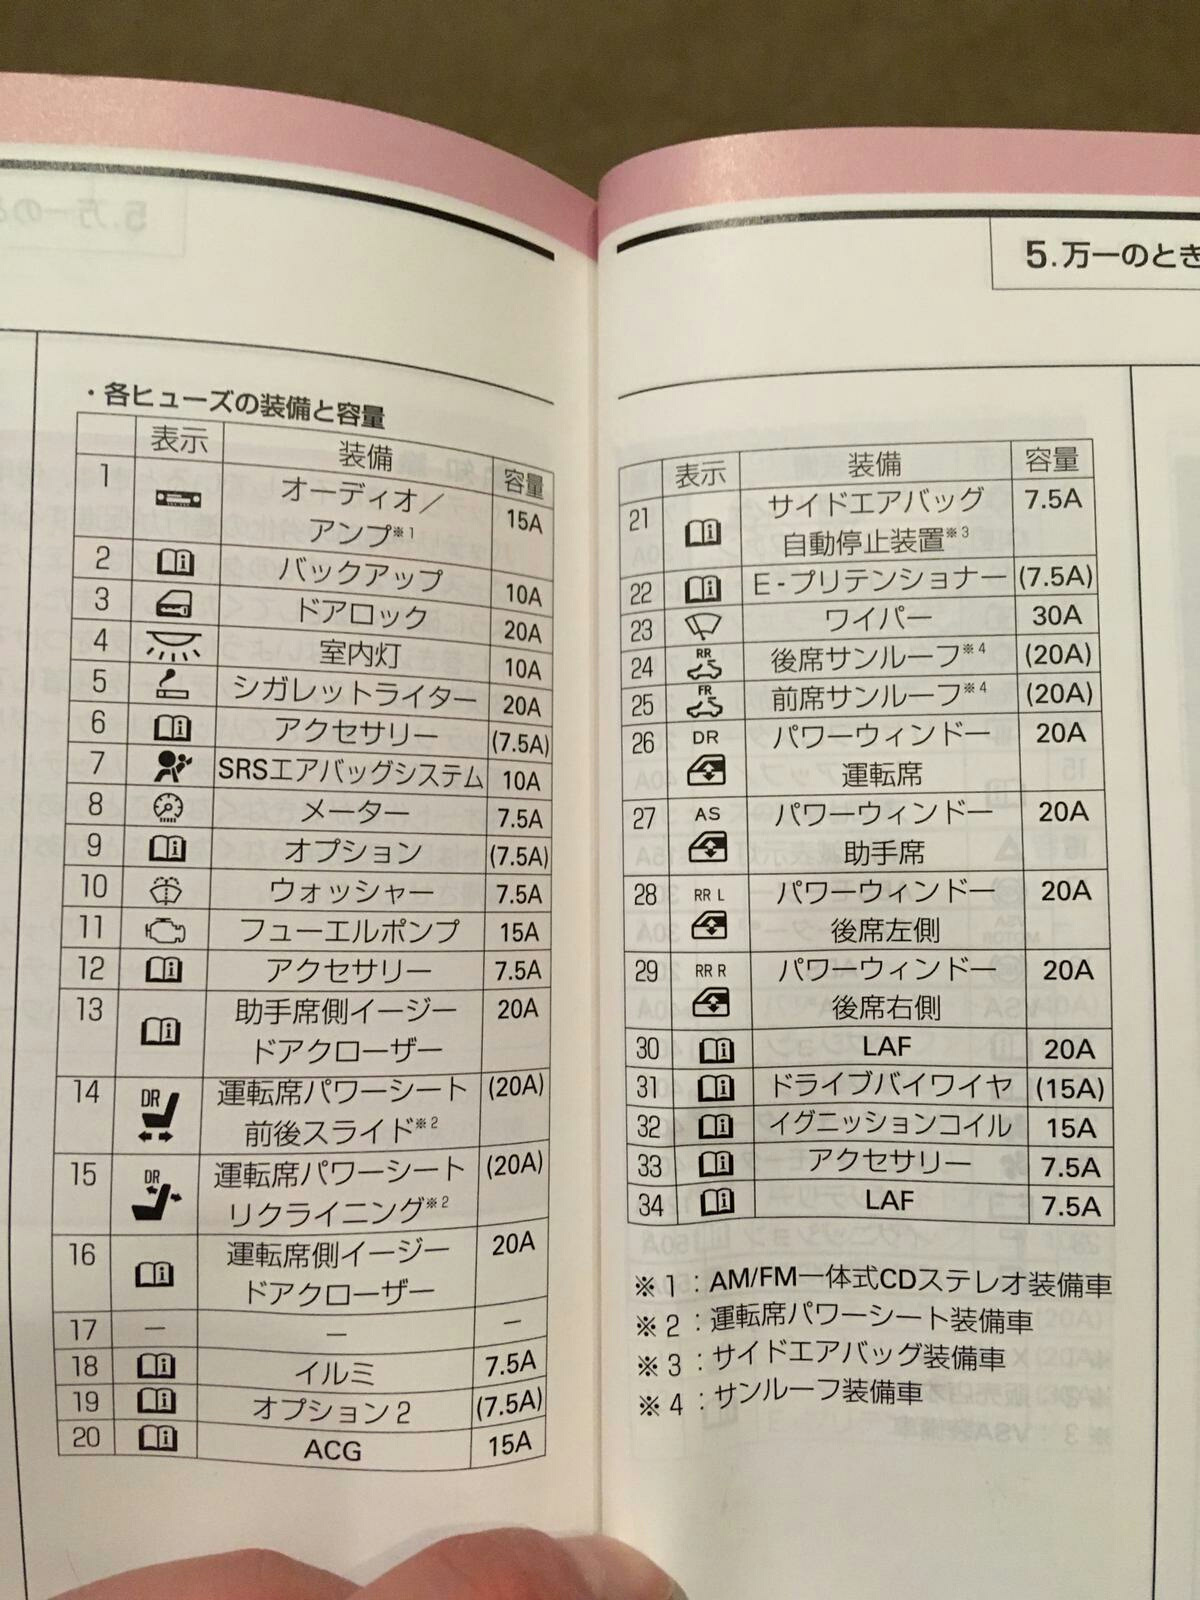 ・各ヒューズの装備と容量
表示 装備 容量
1 オーディオ／アンプ※1 15A
2 バックアップ 10A
3 ドアロック 20A
4 室内灯 10A
5 シガレットライター 20A
6 アクセサリー (7.5A)
7 SRSエアバッグシステム 10A
8 メーター 7.5A
9 オプション (7.5A)
10 ウォッシャー 7.5A
11 フューエルポンプ 15A
12 アクセサリー 7.5A
13 助手席側イージードアクローザー 20A
14 DR 運転席パワーシート前後スライド※2 (20A)
15 DR 運転席パワーシートリクライニング※2 (20A)
16 運転席側イージードアクローザー 20A
17 － － －
18 イルミ 7.5A
19 オプション2 (7.5A)
20 ACG 15A
5.万一のとき
表示 装備 容量
21 サイドエアバッグ自動停止装置※3 7.5A
22 E-プリテンショナー (7.5A)
23 ワイパー 30A
24 RR 後席サンルーフ※4 (20A)
25 FR 前席サンルーフ※4 (20A)
26 DR パワーウィンドー運転席 20A
27 AS パワーウィンドー助手席 20A
28 RR L パワーウィンドー後席左側 20A
29 RR R パワーウィンドー後席右側 20A
30 LAF 20A
31 ドライブバイワイヤ (15A)
32 イグニッションコイル 15A
33 アクセサリー 7.5A
34 LAF 7.5A
※1：AM/FM一体式CDステレオ装備車
※2：運転席パワーシート装備車
※3：サイドエアバッグ装備車
※4：サンルーフ装備車